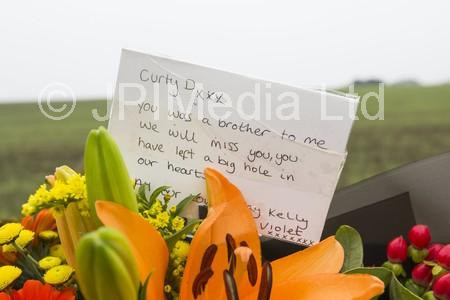 Curly D xxx
© JPIMedia Ltd
you was a brother to me
we will miss you, you
have left a big hole in
our heart
Kelly
Violet xxxxxxx